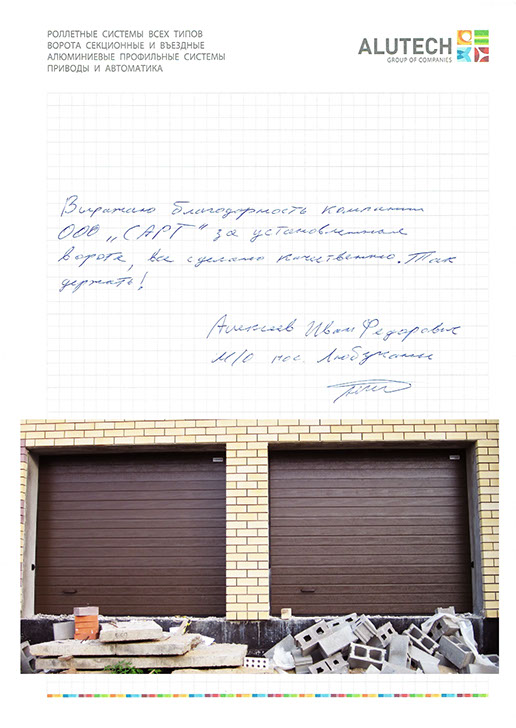 РОЛЛЕТНЫЕ СИСТЕМЫ ВСЕХ ТИПОВ
ВОРОТА СЕКЦИОННЫЕ И ВЪЕЗДНЫЕ
АЛЮМИНИЕВЫЕ ПРОФИЛЬНЫЕ СИСТЕМЫ
ПРИВОДЫ И АВТОМАТИКА
ALUTECH
GROUP OF COMPANIES
Выражаю благодарность компании
ООО „САРГ" за установленные
ворота, все сделано качественно. Так
держать!
Алексеев Иван Федорович
М/О пос. Любучаны